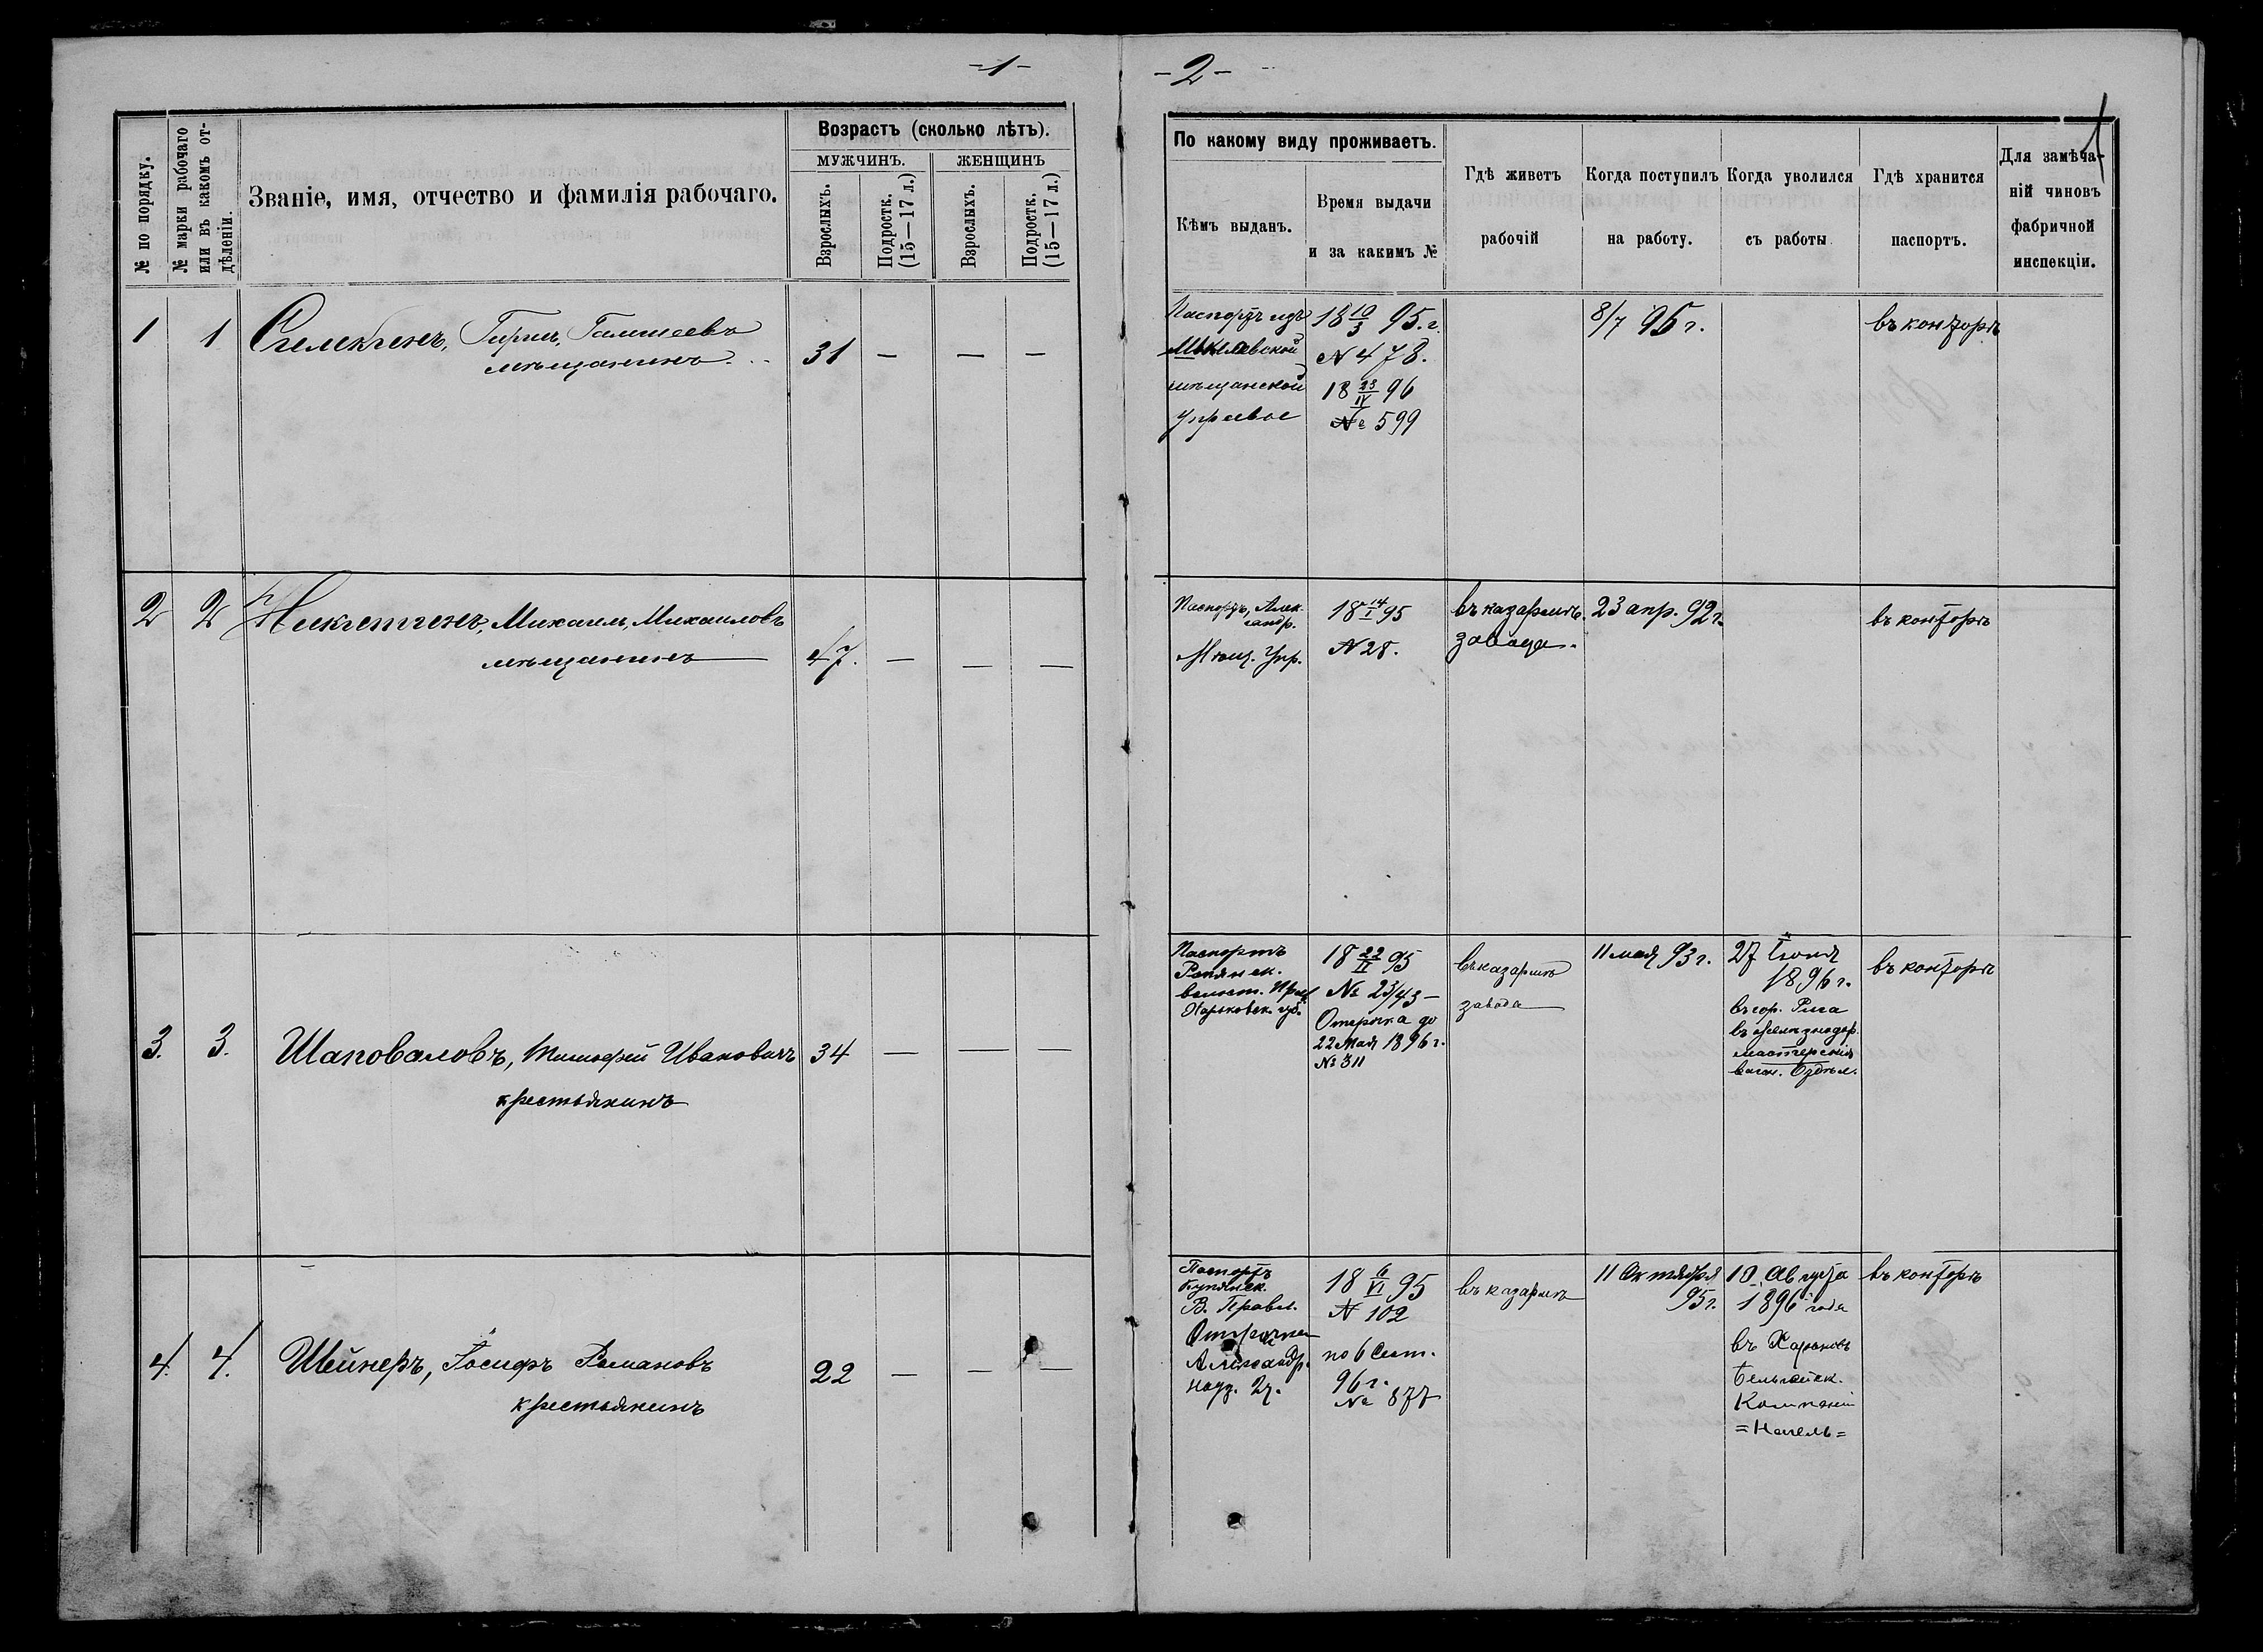 -1-
№ по порядку.
№ марки рабочаго
или въ какомъ от-
дѣленіи.
Званіе, имя, отчество и фамилія рабочаго.
Возрастъ (сколько лѣтъ).
МУЖЧИНЪ.
ЖЕНЩИНЪ
Взрослыхъ.
Подростк.
(15—17 л.)
Взрослыхъ.
Подростк.
(15—17 л.)
1 1
мѣщанинъ
31 — — —
2 2 Михаилъ, Михаиловъ
мѣщанинъ
47. — — —
3. 3. Шаповаловъ, Тимофей Ивановичъ 34 — — —
крестьянинъ
4. 4. Шейнеръ, Іосифъ Романовъ 22 — — —
крестьянинъ
-2-
По какому виду проживаетъ.
Кѣмъ выданъ.
Время выдачи
и за какимъ №
Гдѣ живетъ
рабочій
Когда поступилъ
на работу.
Когда уволился
съ работы
Гдѣ хранится
паспортъ.
Для замѣча-
ній чиновъ
фабричной
инспекціи.
Паспортъ
мѣщанской
18 10/3 95. г.
N 478.
18 23/IV 96
№ 599
8/7 95 г.
въ конторѣ
Паспортъ, Алек-
сандр.
Мѣщ. Упр.
18 14/I 95
N 28.
въ казармѣ
завода.
23 апр. 92 г.
въ конторѣ
Паспортъ
волост.
Харьковск. губ.
18 22/II 95
№ 23/43 —
Отсрочка до
22 Мая 1896 г.
№ 311
въ казармѣ
завода
11 мая 93 г.
27 Іюня
1896 г.
въ гор. Рига
въ желѣзнодор.
мастерскія
вагон. Отдѣл.
въ конторѣ
Паспортъ
Купянск.
В. Правл.
Отсрочка
Александр.
18 6/VI 95
N 102
по 6 Сент.
96 г.
№ 877
въ казармѣ
11 Октября
95 г.
10 Августа
1896 года
въ Харьковъ
Бельгійск.
Компаніи
въ конторѣ